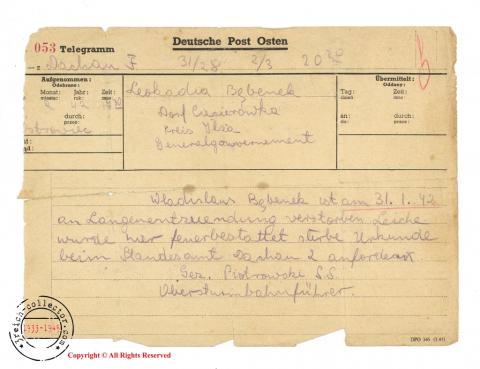 053 Telegramm
Deutsche Post Osten
Dachau F 31/28 2/3 20 20
Aufgenommen:
Odebrane:
Monat: Jahr: Zeit:
miesiąc: rok:
durch:
przez:
Leokadia Bębenek
Dorf
Kreis Ilza
Generalgouvernement
Übermittelt:
Oddany:
Tag: Zeit:
dzień
an: durch:
do: przez:
Wladislaus Bębenek ist am 31.1.42
an verstorben Leiche
wurde hier feuerbestattet sterbe Urkunde
beim Standesamt Dachau 2 anfordern
Gez. Piotrowski S.S.
Obersturmbahnführer.
3reich-collector.com
1933-1945
Copyright © All Rights Reserved